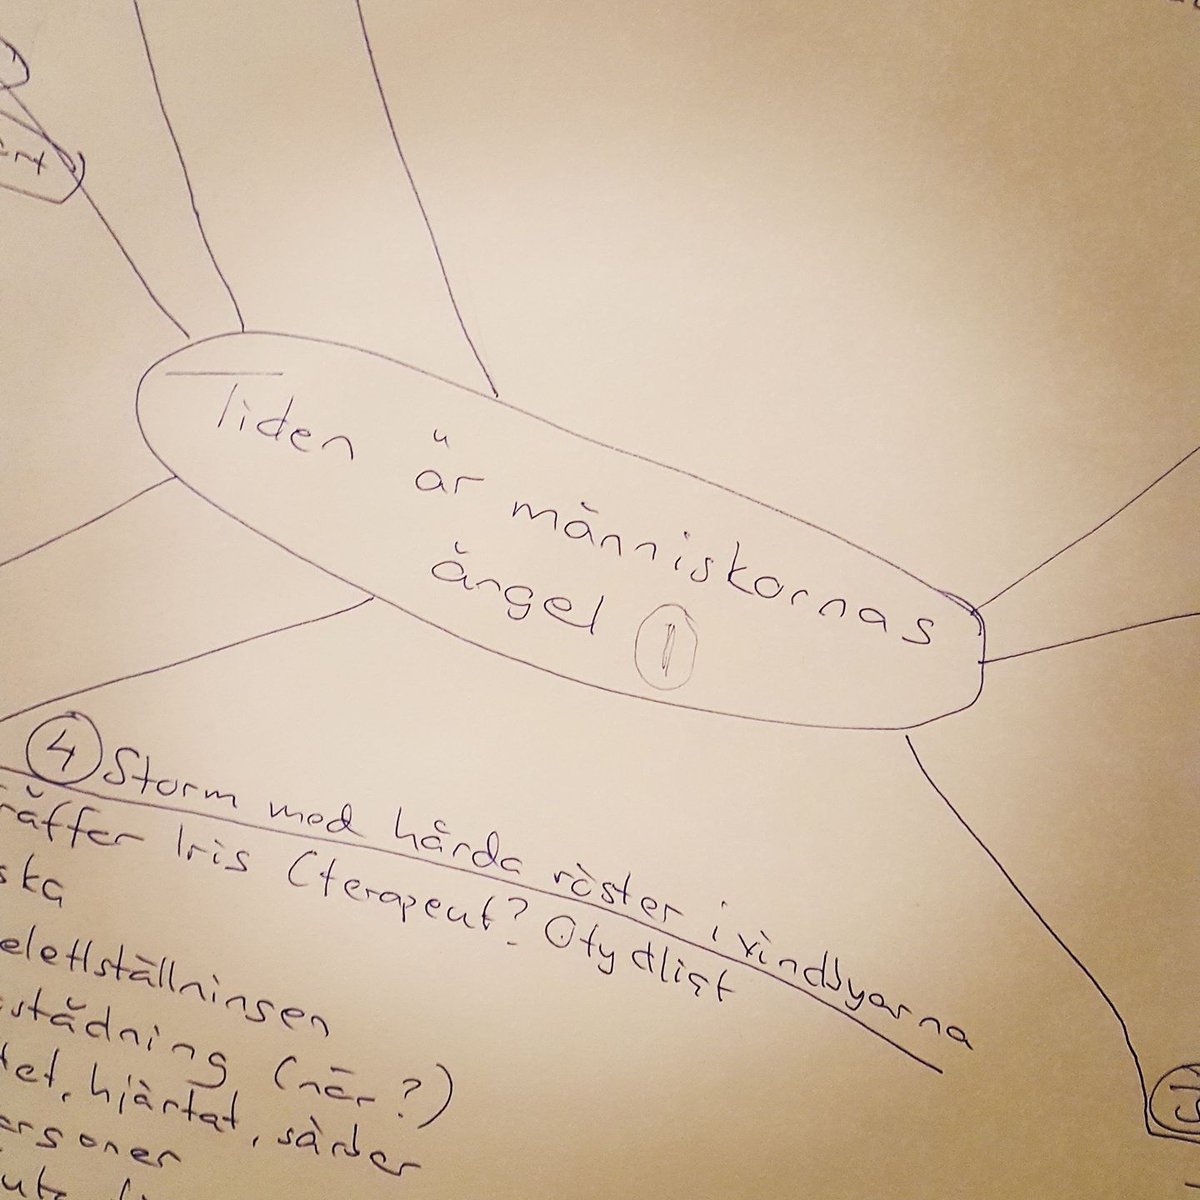 Tiden är människornas
ängel ①
④ Storm med hårda röster i vindbyarna
räffer Iris (terapeut? Otydligt
ska
elettställningen
städning (när?)
tet, hjärtat, sårbar
ersoner